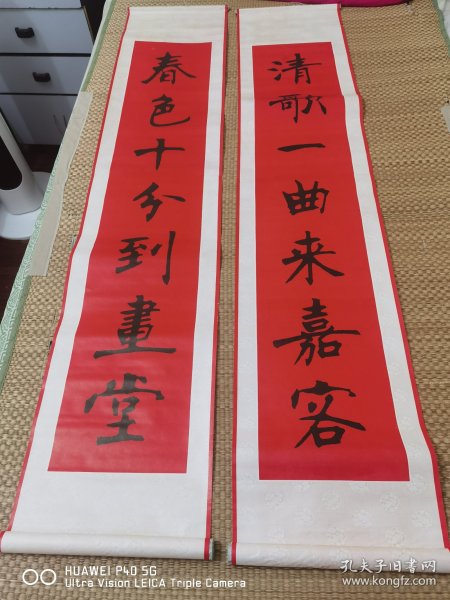 清歌一曲来嘉客
春色十分到畫堂
HUAWEI P40 5G
Ultra Vision LEICA Triple Camera
孔夫子旧书网
www.kongfz.com